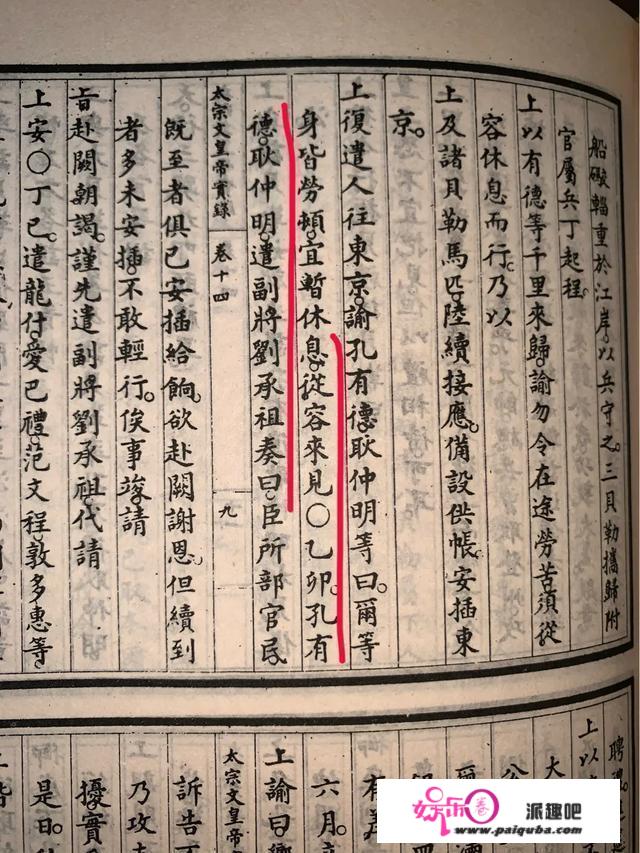 船礮輜重於江岸以兵守之三貝勒攜歸附
官屬兵丁起程
上以有德等千里來歸諭勿令在途勞苦須從
容休息而行乃以
上及諸貝勒馬匹陸續接應備設供帳安插東
京
上復遣人往東京諭孔有德耿仲明等曰爾等
身皆勞頓宜暫休息從容來見〇乙卯孔有
德耿仲明遣副將劉承祖奏曰臣所部官民
太宗文皇帝實錄 卷十四 九
既至者俱已安插給餉欲赴闕謝恩但續到
者多未安插不敢輕行俟事竣請
旨赴闕朝謁謹先遣副將劉承祖代請
上安〇丁巳遣龍什愛巴禮范文程敦多惠等
聘
上以
大
公
爾
有
六月
上諭曰
太宗文皇帝
訴告
乃攻
擾實
是日
上
娱乐圈 派趣吧
www.paiquba.com